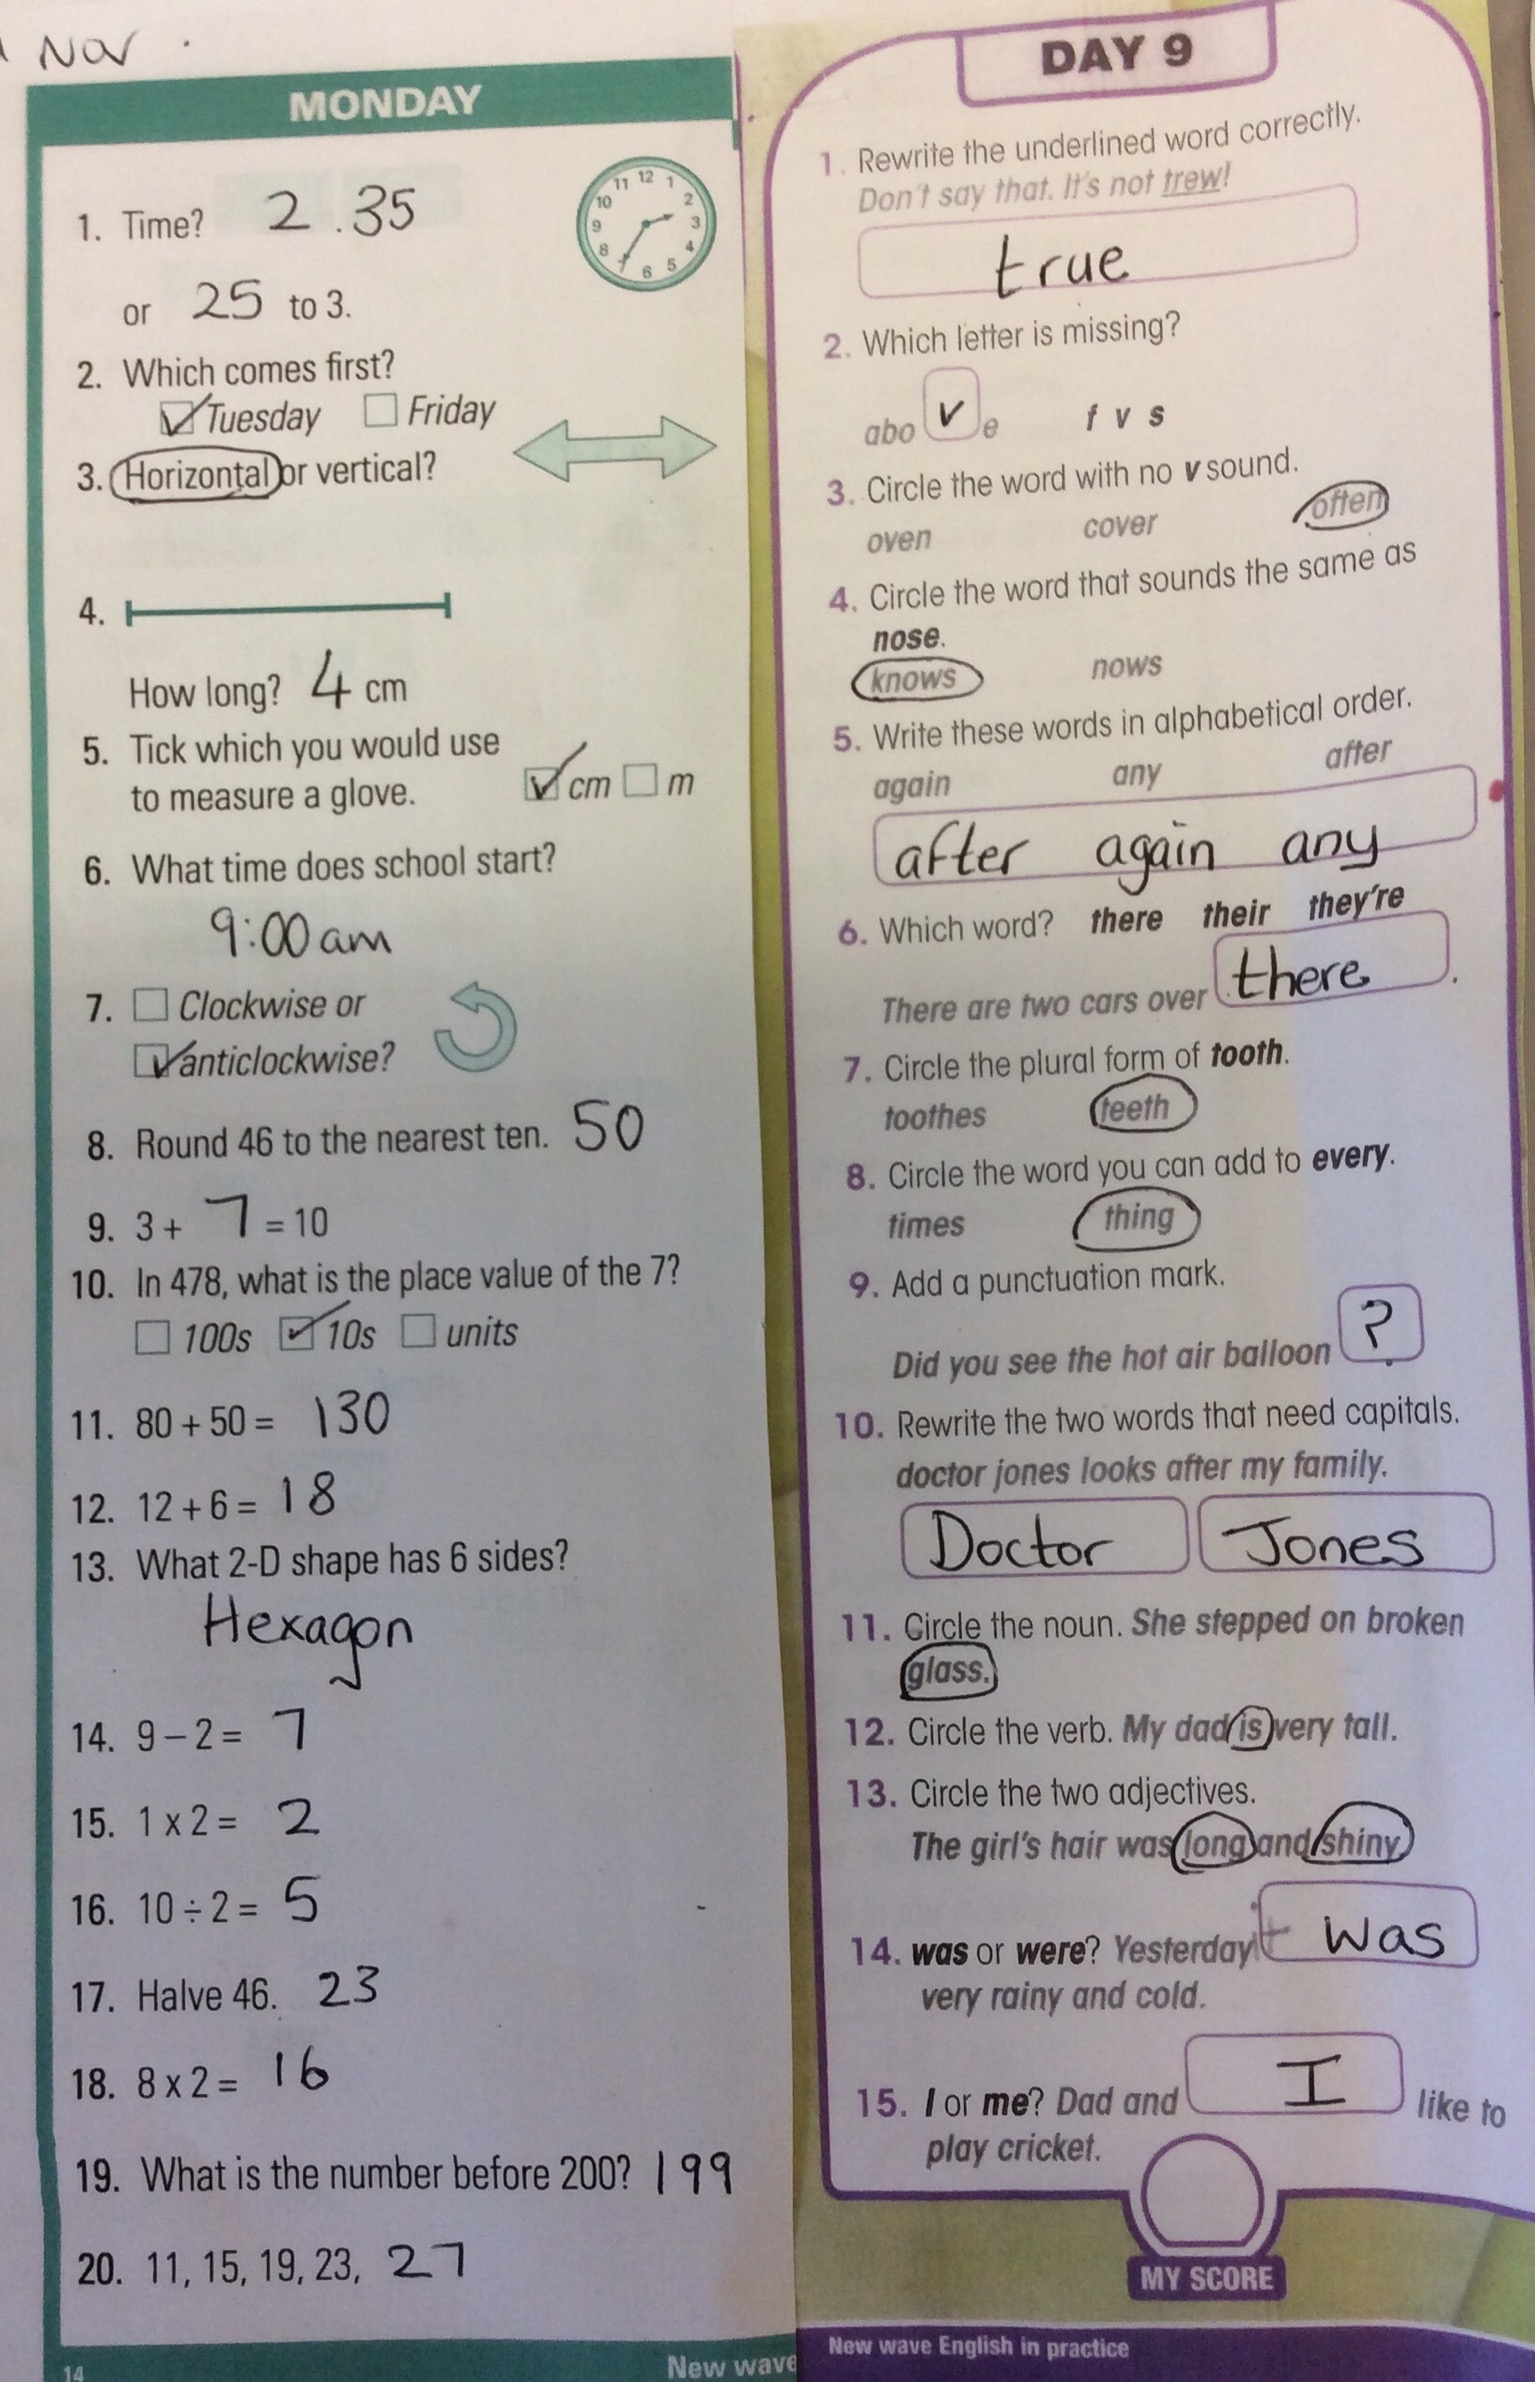 Nov
MONDAY
1. Time? 2.35
12 1 2 3 4 5 6 8 9 10 11
or 25 to 3.
2. Which comes first?
Tuesday Friday
3. Horizontal or vertical?
4.
How long? 4 cm
5. Tick which you would use
to measure a glove. cm m
6. What time does school start?
9:00am
7. Clockwise or
anticlockwise?
8. Round 46 to the nearest ten. 50
9. 3 + 7 = 10
10. In 478, what is the place value of the 7?
100s 10s units
11. 80 + 50 = 130
12. 12 + 6 = 18
13. What 2-D shape has 6 sides?
Hexagon
14. 9 – 2 = 7
15. 1 x 2 = 2
16. 10 ÷ 2 = 5
17. Halve 46. 23
18. 8 x 2 = 16
19. What is the number before 200? 199
20. 11, 15, 19, 23, 27
14
New wave
DAY 9
1. Rewrite the underlined word correctly.
Don't say that. It's not trew!
true
2. Which letter is missing?
abo v e f v s
3. Circle the word with no v sound.
oven cover often
4. Circle the word that sounds the same as
nose.
knows nows
5. Write these words in alphabetical order.
again any after
after again any
6. Which word? there their they're
There are two cars over there .
7. Circle the plural form of tooth.
toothes teeth
8. Circle the word you can add to every.
times thing
9. Add a punctuation mark.
Did you see the hot air balloon ?
10. Rewrite the two words that need capitals.
doctor jones looks after my family.
Doctor Jones
11. Circle the noun. She stepped on broken
glass.
12. Circle the verb. My dad is very tall.
13. Circle the two adjectives.
The girl's hair was long and shiny.
14. was or were? Yesterday it was
very rainy and cold.
15. I or me? Dad and I like to
play cricket.
MY SCORE
New wave English in practice